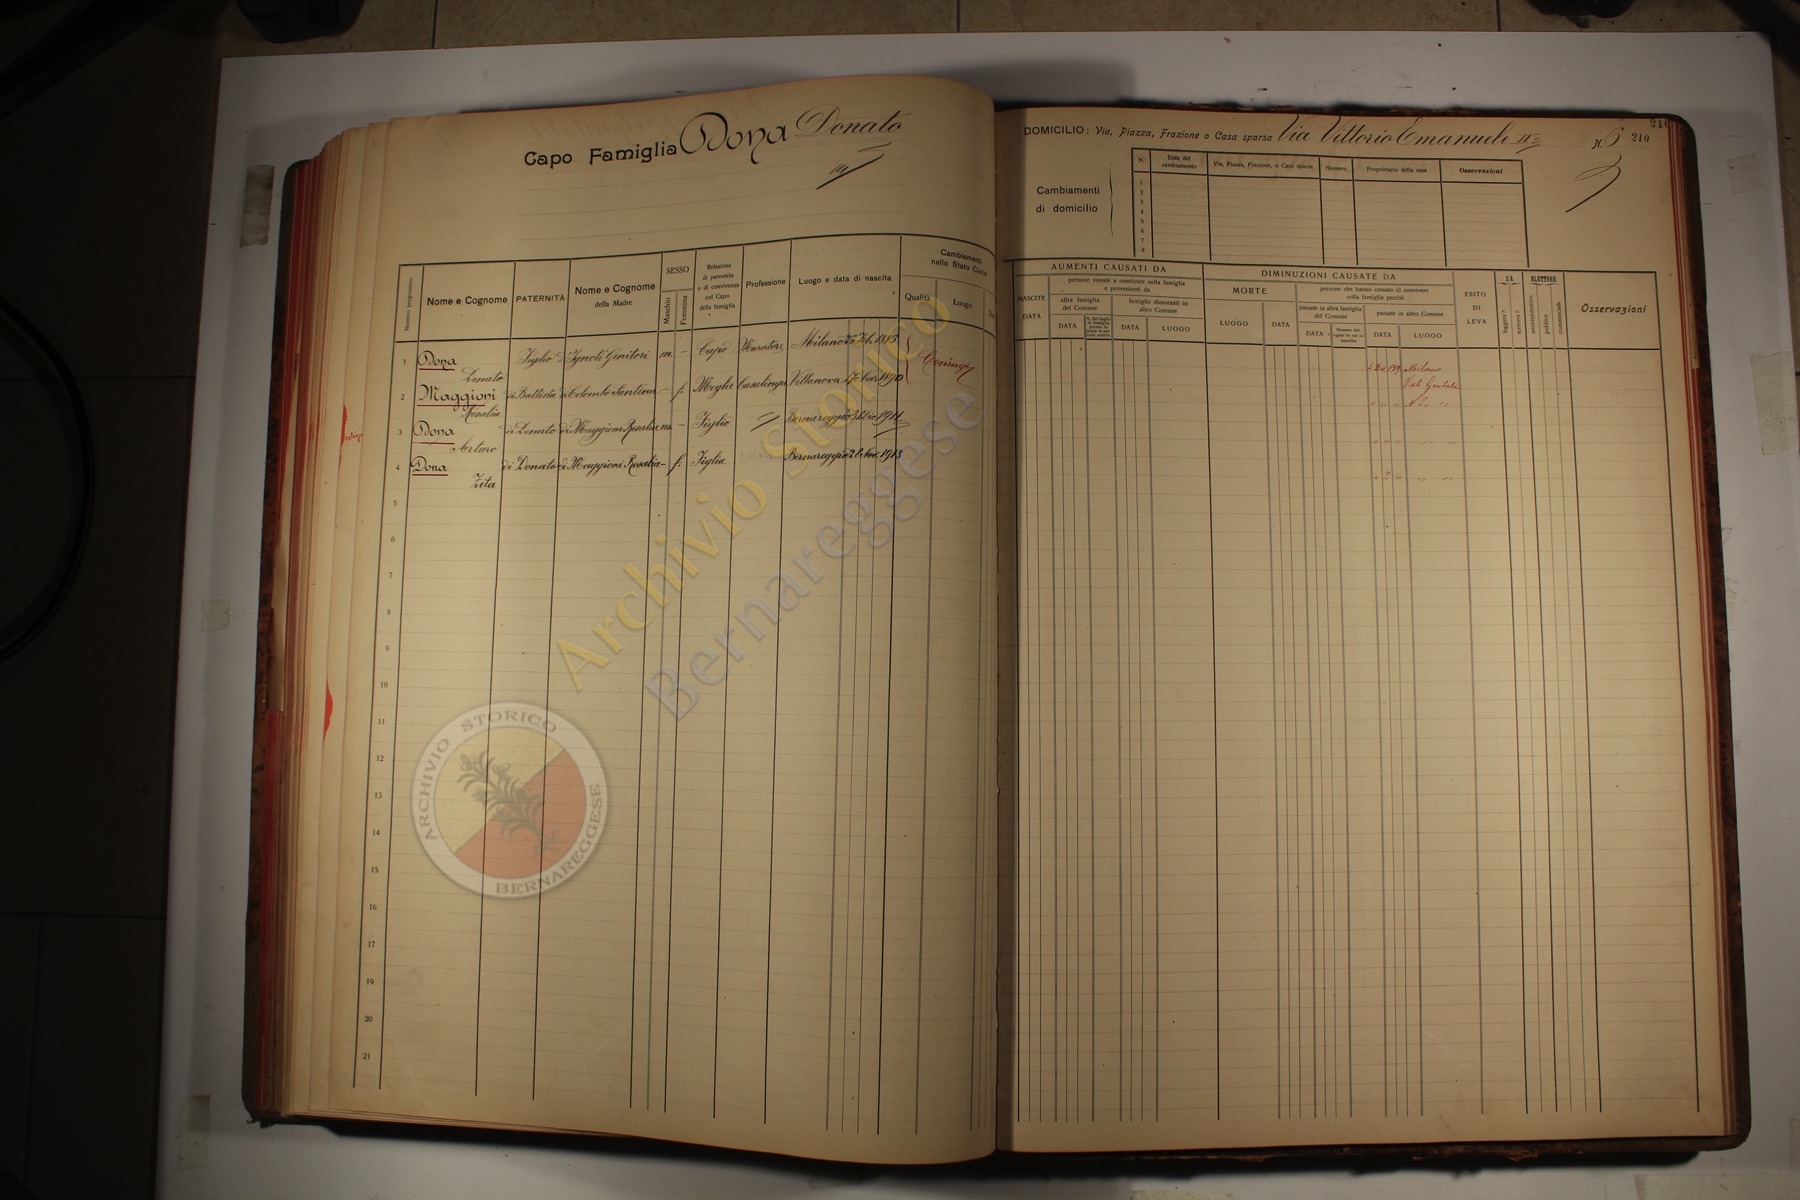 Capo Famiglia Dona Donato
DOMICILIO: Via, Piazza, Frazione o Casa sparsa Via Vittorio Emanuele N. 6
210
210
Cambiamenti di domicilio
N. Data del cambiamento Via, Piazza, Frazione, o Casa sparsa Numero Proprietario della casa Osservazioni
1
2
3
4
5
6
7
8
Numero progressivo
Nome e Cognome
PATERNITÀ
Nome e Cognome della Madre
SESSO
Maschio
Femmina
Relazione di parentela o di convivenza col Capo della famiglia
Professione
Luogo e data di nascita
Cambiamenti nello Stato Civile
Qualità
Luogo
1 Dona Donato Figlio di Ignoti Genitori m. – Capo Muratore Milano 25 1885
2 Maggioni Rosalia di Battista di Colombo Santina – f. Moglie Casalinga Villanova 17 1890
Coniugi
3 Dona Arturo di Donato di Maggioni Rosalia m – Figlio Bernareggio 3 Dic. 1911
4 Dona Zita di Donato di Maggioni Rosalia – f. Figlia Bernareggio 2 Nov. 1913
5
6
7
8
9
10
11
12
13
14
15
16
17
18
19
20
21
AUMENTI CAUSATI DA
NASCITE
DATA
persone venute a convivere nella famiglia e provenienti da
altra famiglia del Comune
DATA
famiglie dimoranti in altro Comune
DATA
LUOGO
DIMINUZIONI CAUSATE DA
MORTE
LUOGO
DATA
persone che hanno cessato di convivere colla famiglia perchè
passate in altra famiglia del Comune
DATA
passate in altro Comune
DATA
LUOGO
ESITO DI LEVA
SA
leggere?
scrivere?
ELETTORE
amministrativo
politico
commerciale
Osservazioni
Milano
Archivio Storico
Bernareggese
ARCHIVIO STORICO
BERNAREGGESE